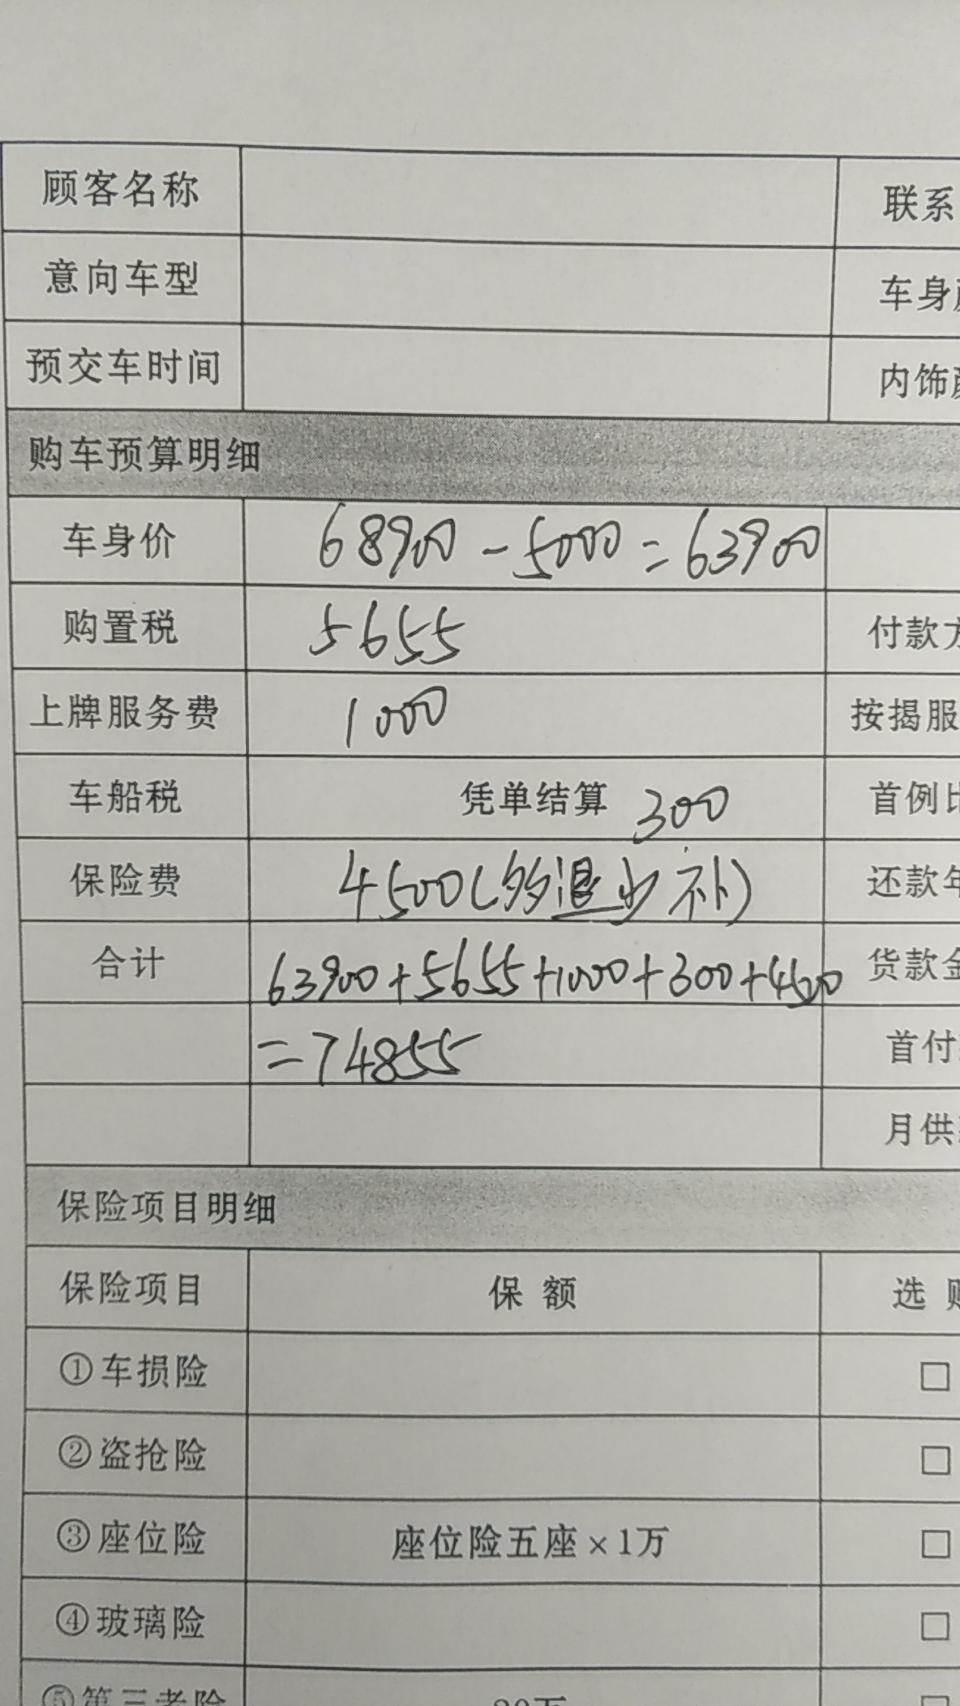 顾客名称 联系
意向车型 车身
预交车时间 内饰
购车预算明细
车身价 68900-5000=63900
购置税 5655 付款方
上牌服务费 1000 按揭服
车船税 凭单结算 300 首例比
保险费 4500(多退少补) 还款年
合计 63900+5655+1000+300+4500 货款金
=74855 首付
月供
保险项目明细
保险项目 保额 选购
①车损险 □
②盗抢险 □
③座位险 座位险五座×1万 □
④玻璃险 □
⑤第三者险